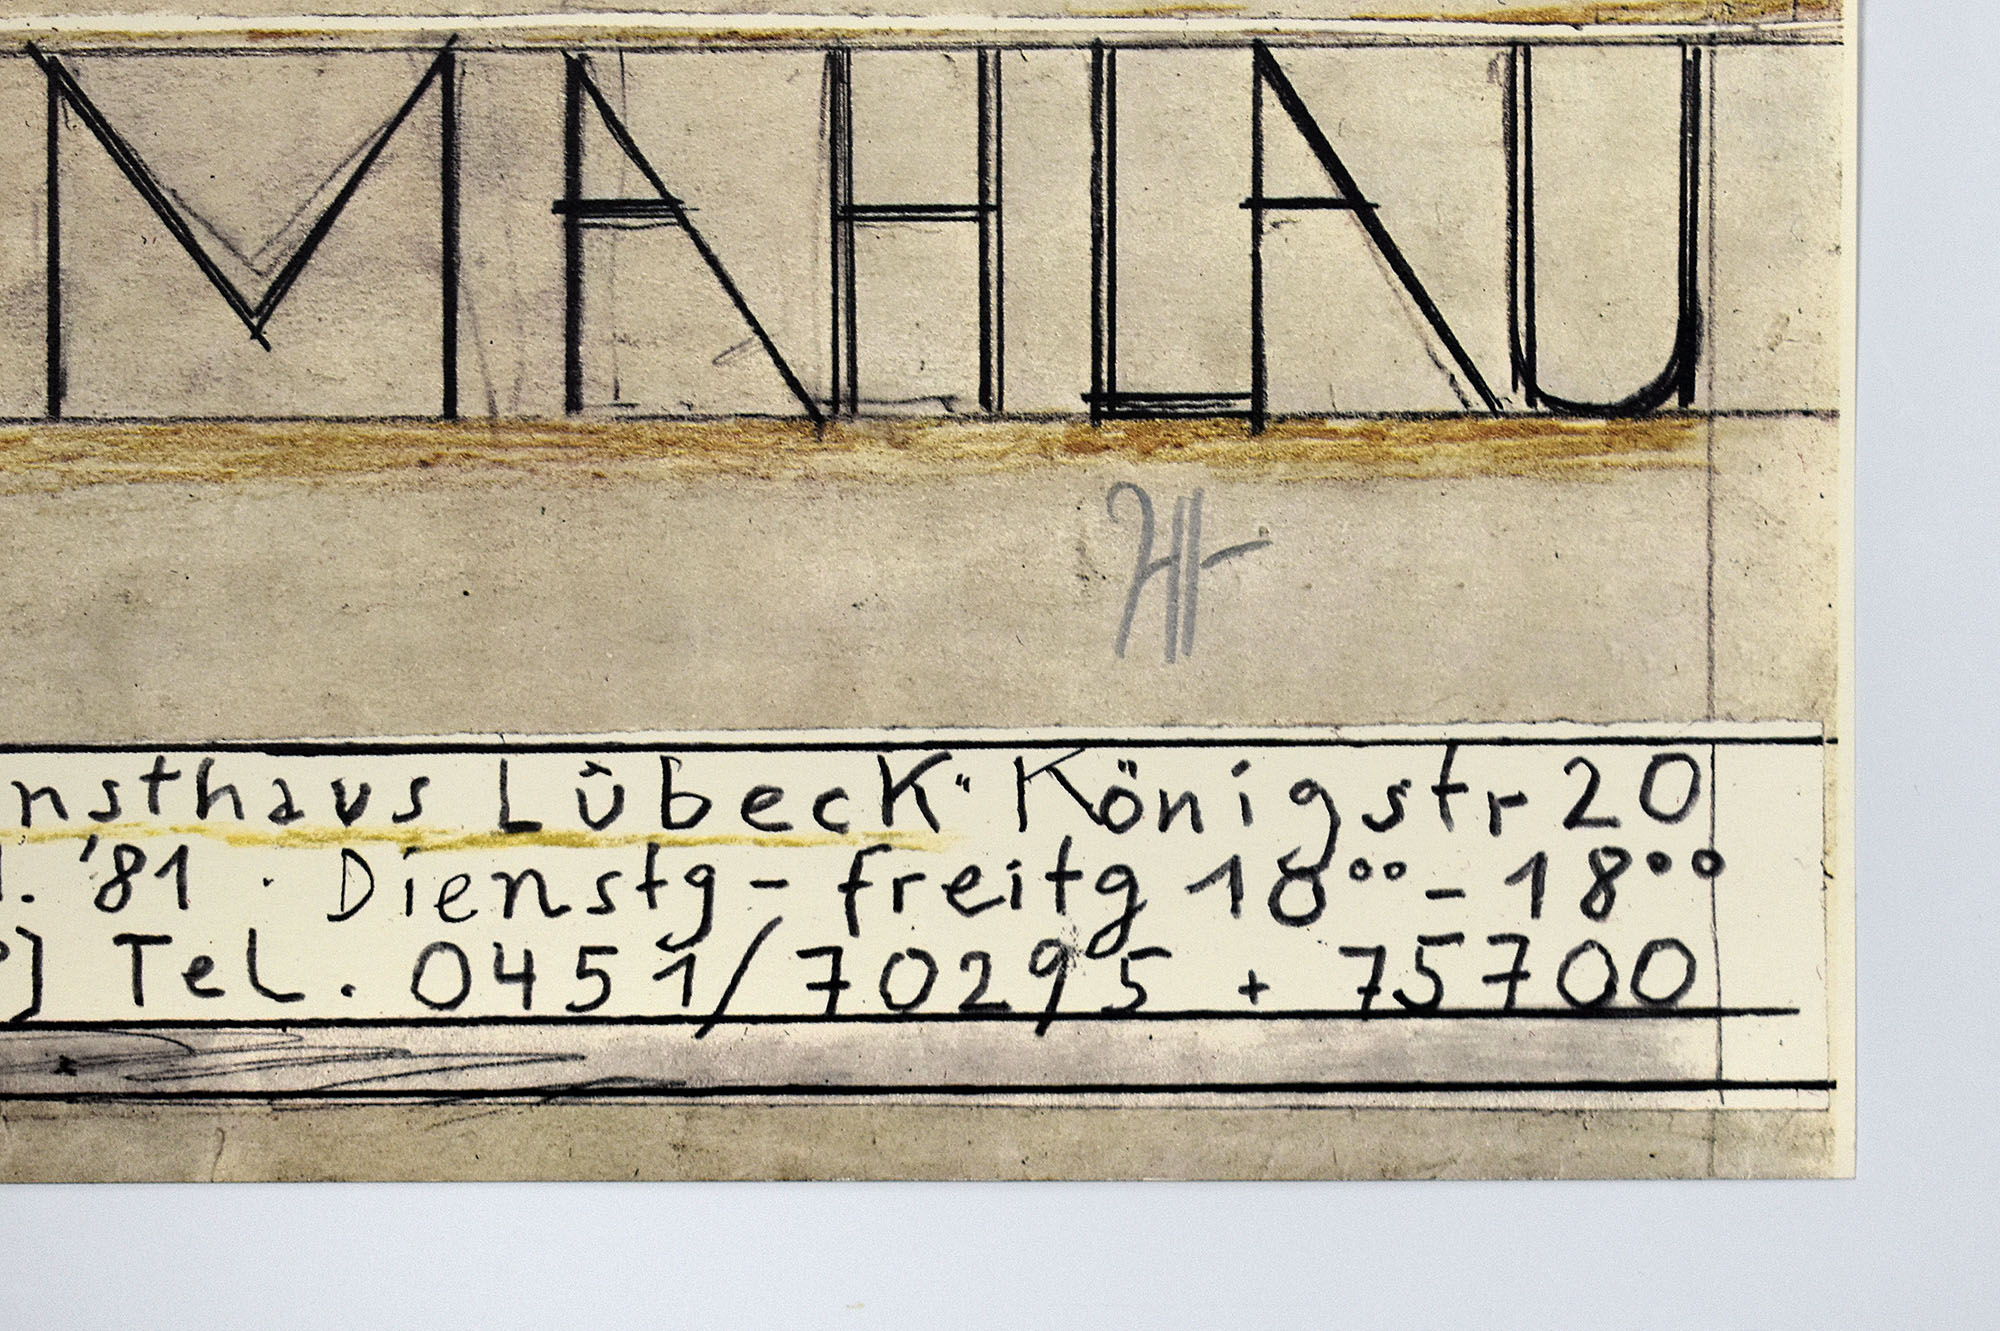 MAHLAU
nsthaus Lübeck" Königstr 20
. '81 · Dienstg - freitg 10⁰⁰ - 18⁰⁰
] Tel. 0451/70295 + 75700